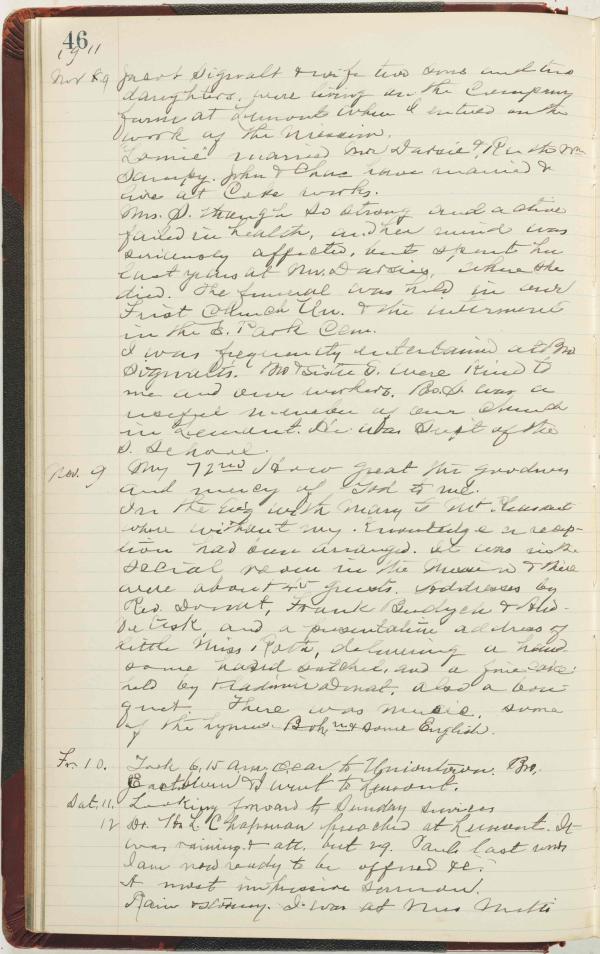 46
1911
Nov 8 9 Jacob Sigwalt & wife two sons and two
daughters, were living on the Company
farm at Lemont when I entered on the
work of the Mission.
married Mr Darsie & Ruth
John & Chas have married &
live at Coke works.
Mrs. S. though so strong and active
failed in health, and her mind was
seriously affected, but spent her
last years at Mr. Darsies, where she
died. The funeral was held in our
First Church Un. & the interment
in the S. Park Cem.
I was frequently entertained at Bro
Sigwalts. Bro & Sister S. were kind to
me and our workers. Bo. S. was a
useful member of our Church
in Lemont. He was Supt of the
S. School.
Nov. 9 My 72nd How great the goodness
and mercy of God to me.
In the Ev'g with Mary to Mt Pleasant
where without my knowledge a recep-
tion had been arranged. It was in the
social room in the Mission & there
were about 45 guests. Addresses by
Rev. Frank &
and a presentation address of
little Miss Rota, delivering a hand-
some hand satchel, and a fine cake
held by Vladimir also a bou
quet. There was music, some
of the hymns Boh, n & some English.
Fr. 10. Took 6,15 am car to Uniontown. Bro,
& I went to Lemont.
Sat. 11. Looking forward to Sunday services
12 Dr. H. L. Chapman preached at Lemont. It
was raining & att, but 29. Pauls last words
I am now ready to be offered &c.
A most impressive sermon.
Rain & stormy. I was at Mrs